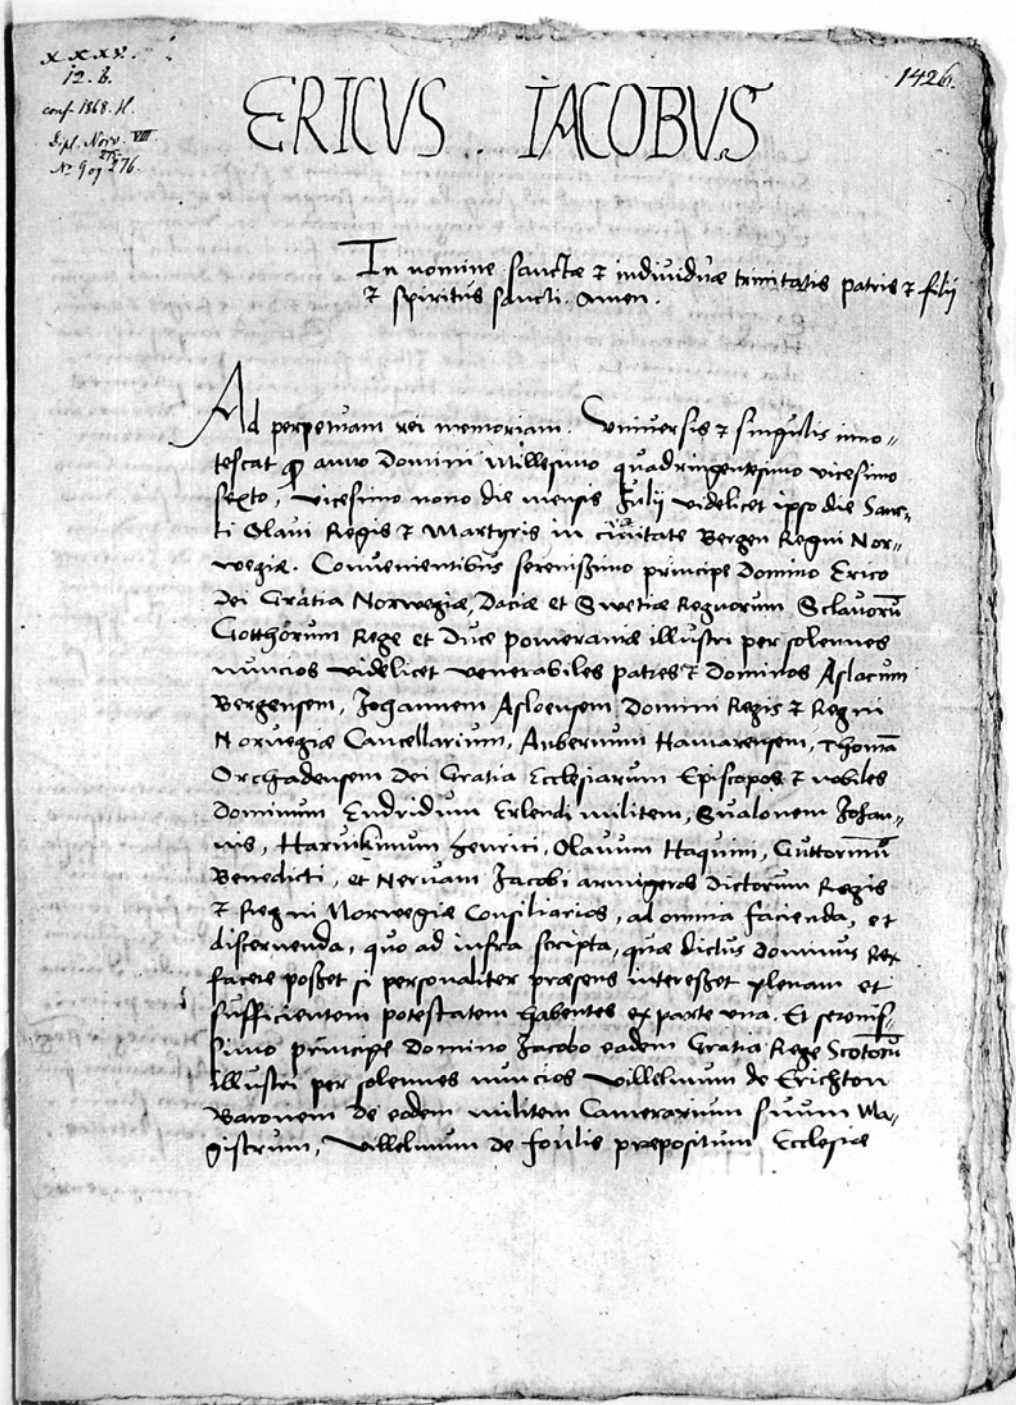 XXXV.
12. b.
conf. 1868. H.
Dipl. Norv. VIII
275
No 909 276.
1426.
ERICVS . IACOBVS
In nomine sanctæ & individuæ trinitatis patris & filij
& spiritus sancti. Amen.
Ad perpetuam rei memoriam. Vniuersis & singulis inno„
tescat ꝙ anno Domini Millesimo quadringentesimo vicesimo
sexto, vicesimo nono die mensis Julij videlicet ipso die Sanc„
ti Olaui Regis & Martyris in ciuitate Bergen Regni Nor„
wegiæ. Conuenientibus serenissimo principe Domino Erico
Dei Gratia Norwegiæ, Daciæ et Swetiæ Regnorum Sclauorū
Gotthorum Rege et Duce pomeraniæ illustri per solennes
nuncios videlicet venerabiles patres & Dominos Aslacum
Bergensem, Johannem Asloensem Domini Regis & Regni
Noruegiæ Cancellarium, Anbernum Hamarensem, Thomā
Orchadensem Dei Gratia Ecclesiarum Episcopos & nobiles
Dominum Endridum Erlendi militem, Sualonem Johan„
nis, Haruikinum Henrici, Olauum Haquini, Guttormū
Benedicti, et Neruam Jacobi armigeros Dictorum Regis
& Regni Norwegiæ Consiliarios, ad omnia facienda, et
discernenda, quo ad infra scripta, quæ dictus dominus Rex
facere posset si personaliter præsens interesset plenam et
sufficientem potestatem habentes ex parte vna. Et serenis„
simo principe Domino Jacobo eadem Gratia Rege Scotorū
illustri per solennes nuncios Villelmum de Crichton
Baronem de eodem militem Camerarium suum Ma„
gistrum, Villelmum de foulis præpositum Ecclesiæ